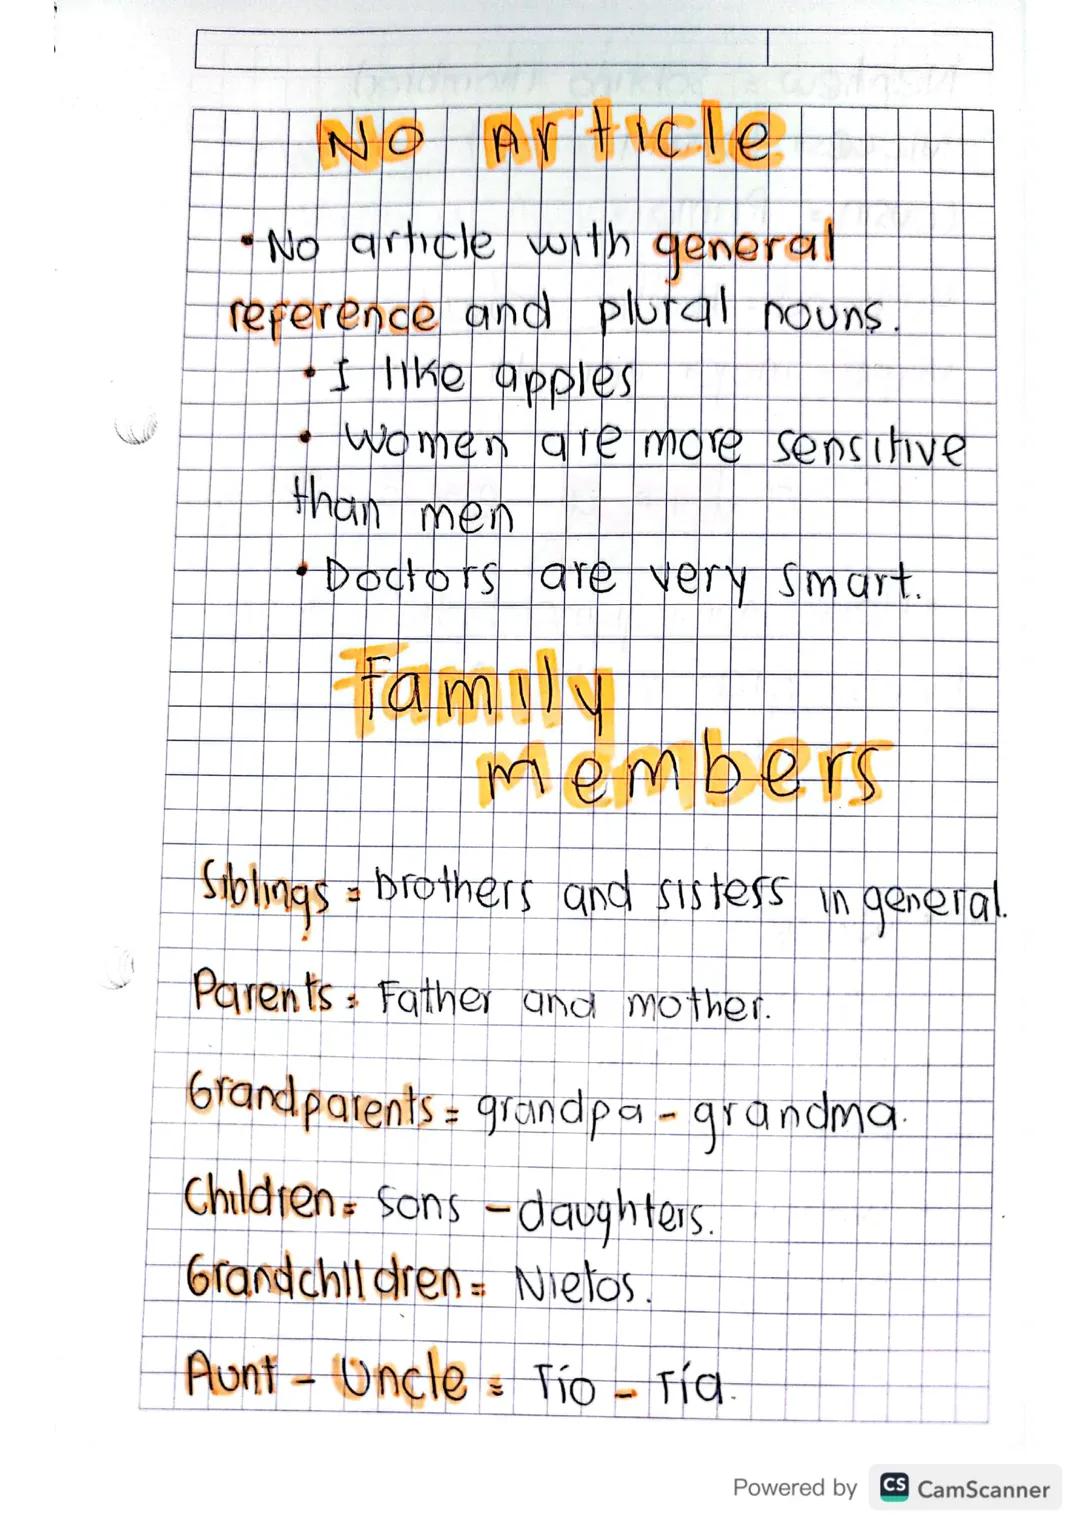 No Article
• No article with general
reference and plural nouns.
• I like apples
• Women are more sensitive
than men
• Doctors are very smart.
Family
members
Siblings = brothers and sisters in general.
Parents = Father and mother.
Grandparents = grandpa - grandma.
Children = sons - daughters.
Grandchildren = Nietos.
Aunt - Uncle = Tío - Tía.
Powered by CS CamScanner